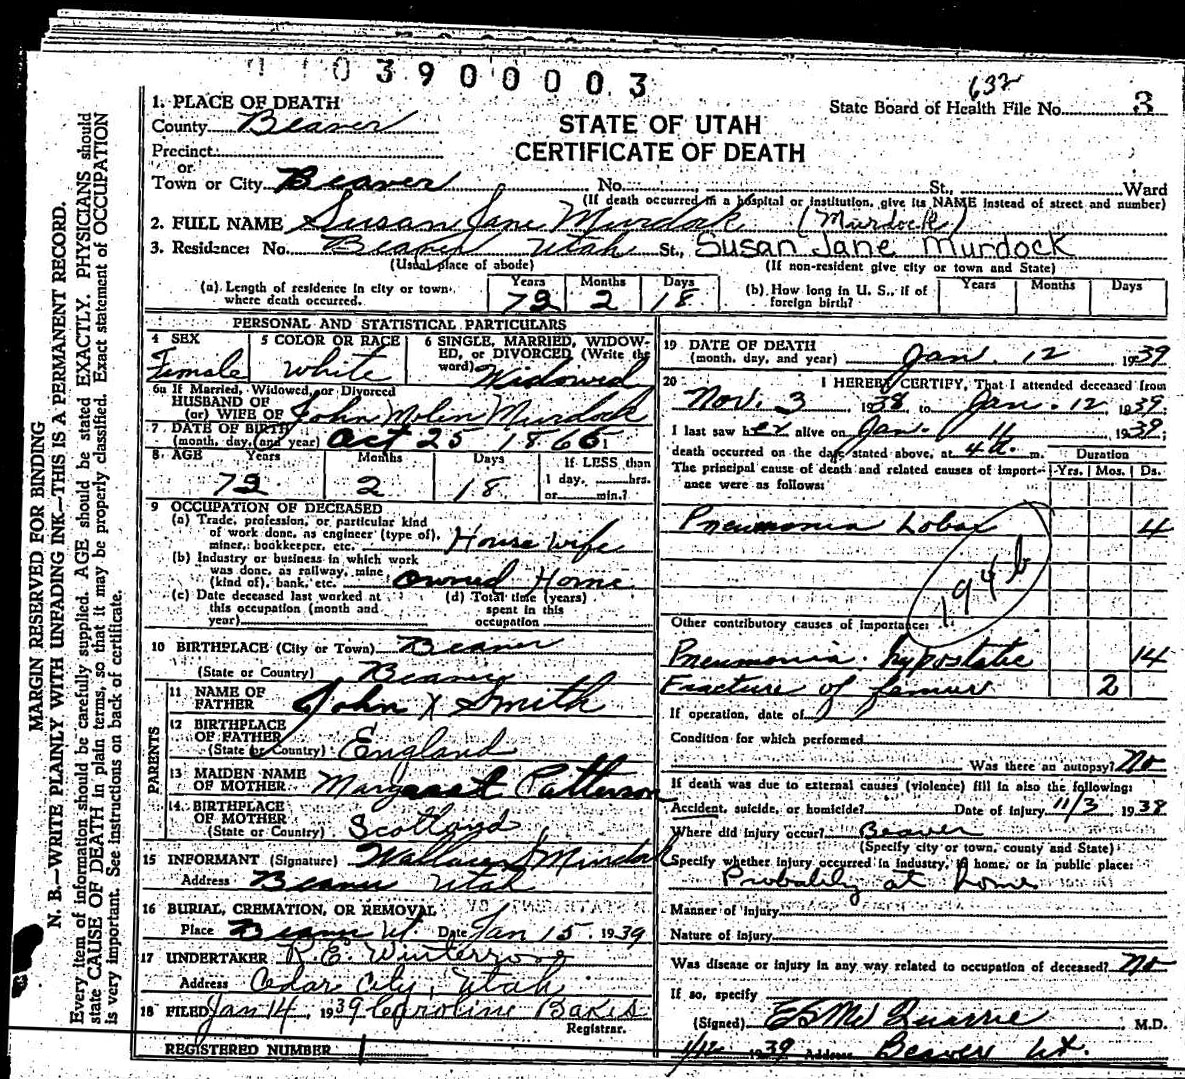 03900003
632
State Board of Health File No. 3
1. PLACE OF DEATH
County Beaver
STATE OF UTAH
CERTIFICATE OF DEATH
Precinct
or
Town or City Beaver No. St., Ward
(If death occurred in a hospital or institution, give its NAME instead of street and number)
2. FULL NAME Susan Jane Murdock (Murdock)
3. Residence: No. Beaver Utah St., Susan Jane Murdock
(Usual place of abode) (If non-resident give city or town and State)
(a) Length of residence in city or town where death occurred. Years Months Days 2 18
(b) How long in U. S., if of foreign birth? Years Months Days
PERSONAL AND STATISTICAL PARTICULARS
4 SEX Female
5 COLOR OR RACE White
6 SINGLE, MARRIED, WIDOW-
ED, or DIVORCED (Write the
word) Widowed
6a If Married, Widowed, or Divorced
HUSBAND OF
(or) WIFE OF John Murdock
7 DATE OF BIRTH
(month, day, and year) Oct 25 1866
8 AGE Years Months Days If LESS than
2 18 1 day, hrs.
or min.?
9 OCCUPATION OF DECEASED
(a) Trade, profession, or particular kind
of work done, as engineer (type of),
miner, bookkeeper, etc. House wife
(b) Industry or business in which work
was done, as railway, mine
(kind of), bank, etc. owned Home
(c) Date deceased last worked at
this occupation (month and
year)
(d) Total time (years)
spent in this
occupation
10 BIRTHPLACE (City or Town) Beaver
(State or Country) Beaver
PARENTS
11 NAME OF
FATHER John X Smith
12 BIRTHPLACE
OF FATHER
(State or Country) England
13 MAIDEN NAME
OF MOTHER Margaret Patterson
14. BIRTHPLACE
OF MOTHER
(State or Country) Scotland
15 INFORMANT (Signature) Wallace S Murdock
Address Beaver Utah
16 BURIAL, CREMATION, OR REMOVAL
Place Beaver Ut Date Jan 15, 1939
17 UNDERTAKER R.E. Winterrose
Address Cedar City, Utah
18 FILED Jan 14, 1939 Caroline Bakes
Registrar.
REGISTERED NUMBER 1
19 DATE OF DEATH
(month, day, and year) Jan. 12 1939
20 I HEREBY CERTIFY, That I attended deceased from
Nov. 3 1938 to Jan. 12, 1939;
I last saw her alive on Jan. 11, 1939;
death occurred on the date stated above, at 4 a. m.
The principal cause of death and related causes of import-
ance were as follows:
Duration
Yrs. Mos. Ds.
Pneumonia Lobar 4
194b
Other contributory causes of importance:
Pneumonia hypostatic 14
Fracture of femur 2
If operation, date of
Condition for which performed
Was there an autopsy? No
If death was due to external causes (violence) fill in also the following:
Accident, suicide, or homicide? Date of injury 11/3 1938
Where did injury occur? Beaver
(Specify city or town, county and State)
Specify whether injury occurred in industry, in home, or in public place:
Probably at home
Manner of injury
Nature of injury
Was disease or injury in any way related to occupation of deceased? No
If so, specify
(Signed) McQuarrie M.D.
1/12 1939 Address Beaver Ut.
MARGIN RESERVED FOR BINDING
N. B.—WRITE PLAINLY WITH UNFADING INK—THIS IS A PERMANENT RECORD.
Every item of information should be carefully supplied. AGE should be stated EXACTLY. PHYSICIANS should
state CAUSE OF DEATH in plain terms, so that it may be properly classified. Exact statement of OCCUPATION
is very important. See instructions on back of certificate.